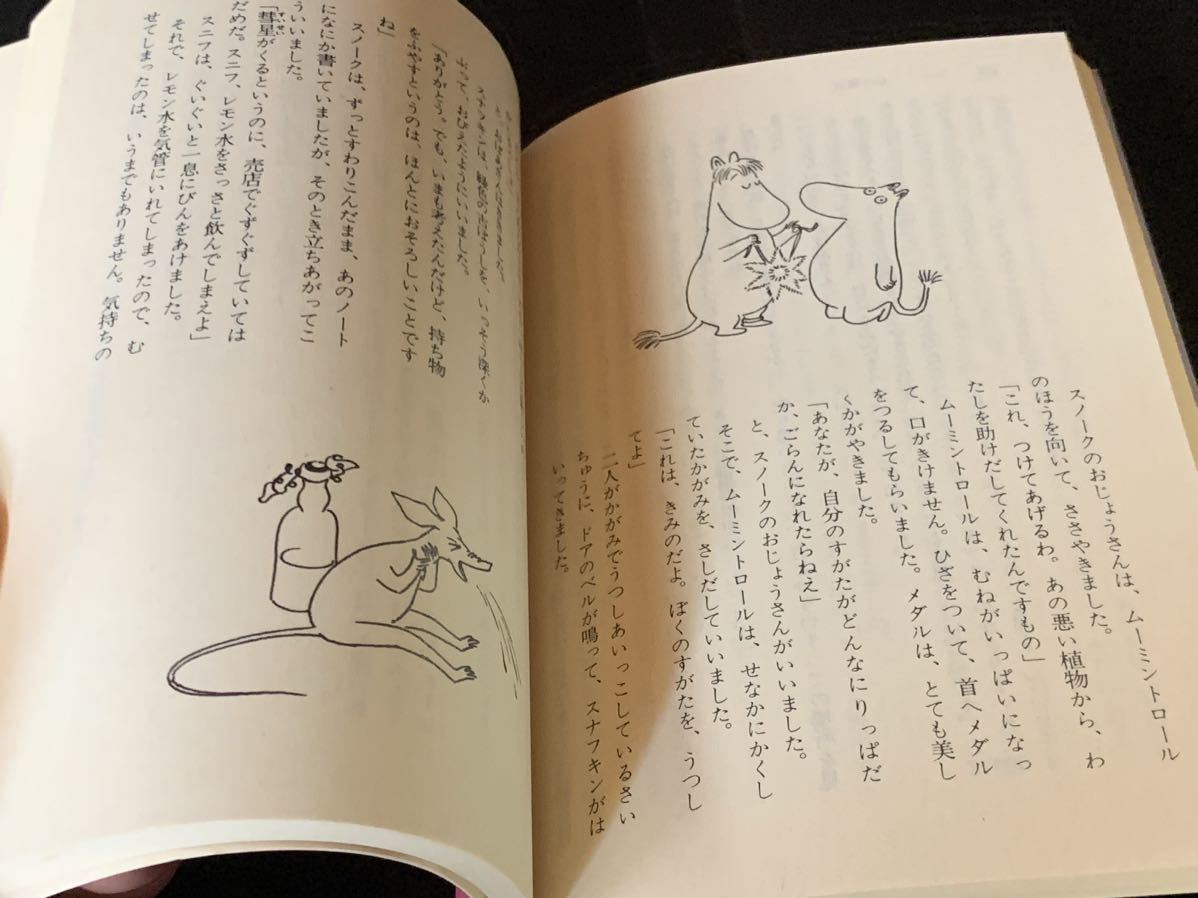 スノークのおじょうさんは、ムーミントロール
のほうを向いて、ささやきました。
「これ、つけてあげるわ。あの悪い植物から、わ
たしを助けだしてくれたんですもの」
ムーミントロールは、むねがいっぱいになっ
て、口がきけません。ひざをついて、首へメダル
をつるしてもらいました。メダルは、とても美し
くかがやきました。
「あなたが、自分のすがたがどんなにりっぱだ
か、ごらんになれたらねえ」
と、スノークのおじょうさんがいいました。
そこで、ムーミントロールは、せなかにかくし
ていたかがみを、さしだしていいました。
「これは、きみのだよ。ぼくのすがたを、うつし
てよ」
二人がかがみでうつしあいっこしているさい
ちゅうに、ドアのベルが鳴って、スナフキンがは
いってきました。
スナフキンは、緑色のぼうしを、いっそう深くか
ぶって、おびえたようにいいました。
「ありがとう。でも、いまも考えたんだけど、持ち物
をふやすというのは、ほんとにおそろしいことです
ね」
スノークは、ずっとすわりこんだまま、あのノート
になにか書いていましたが、そのとき立ちあがってこ
ういいました。
「彗星がくるというのに、売店でぐずぐずしていては
だめだ。スニフ、レモン水をさっさと飲んでしまえよ」
スニフは、ぐいぐいと一息にびんをあけました。
それで、レモン水を気管にいれてしまったので、む
せてしまったのは、いうまでもありません。気持ちの